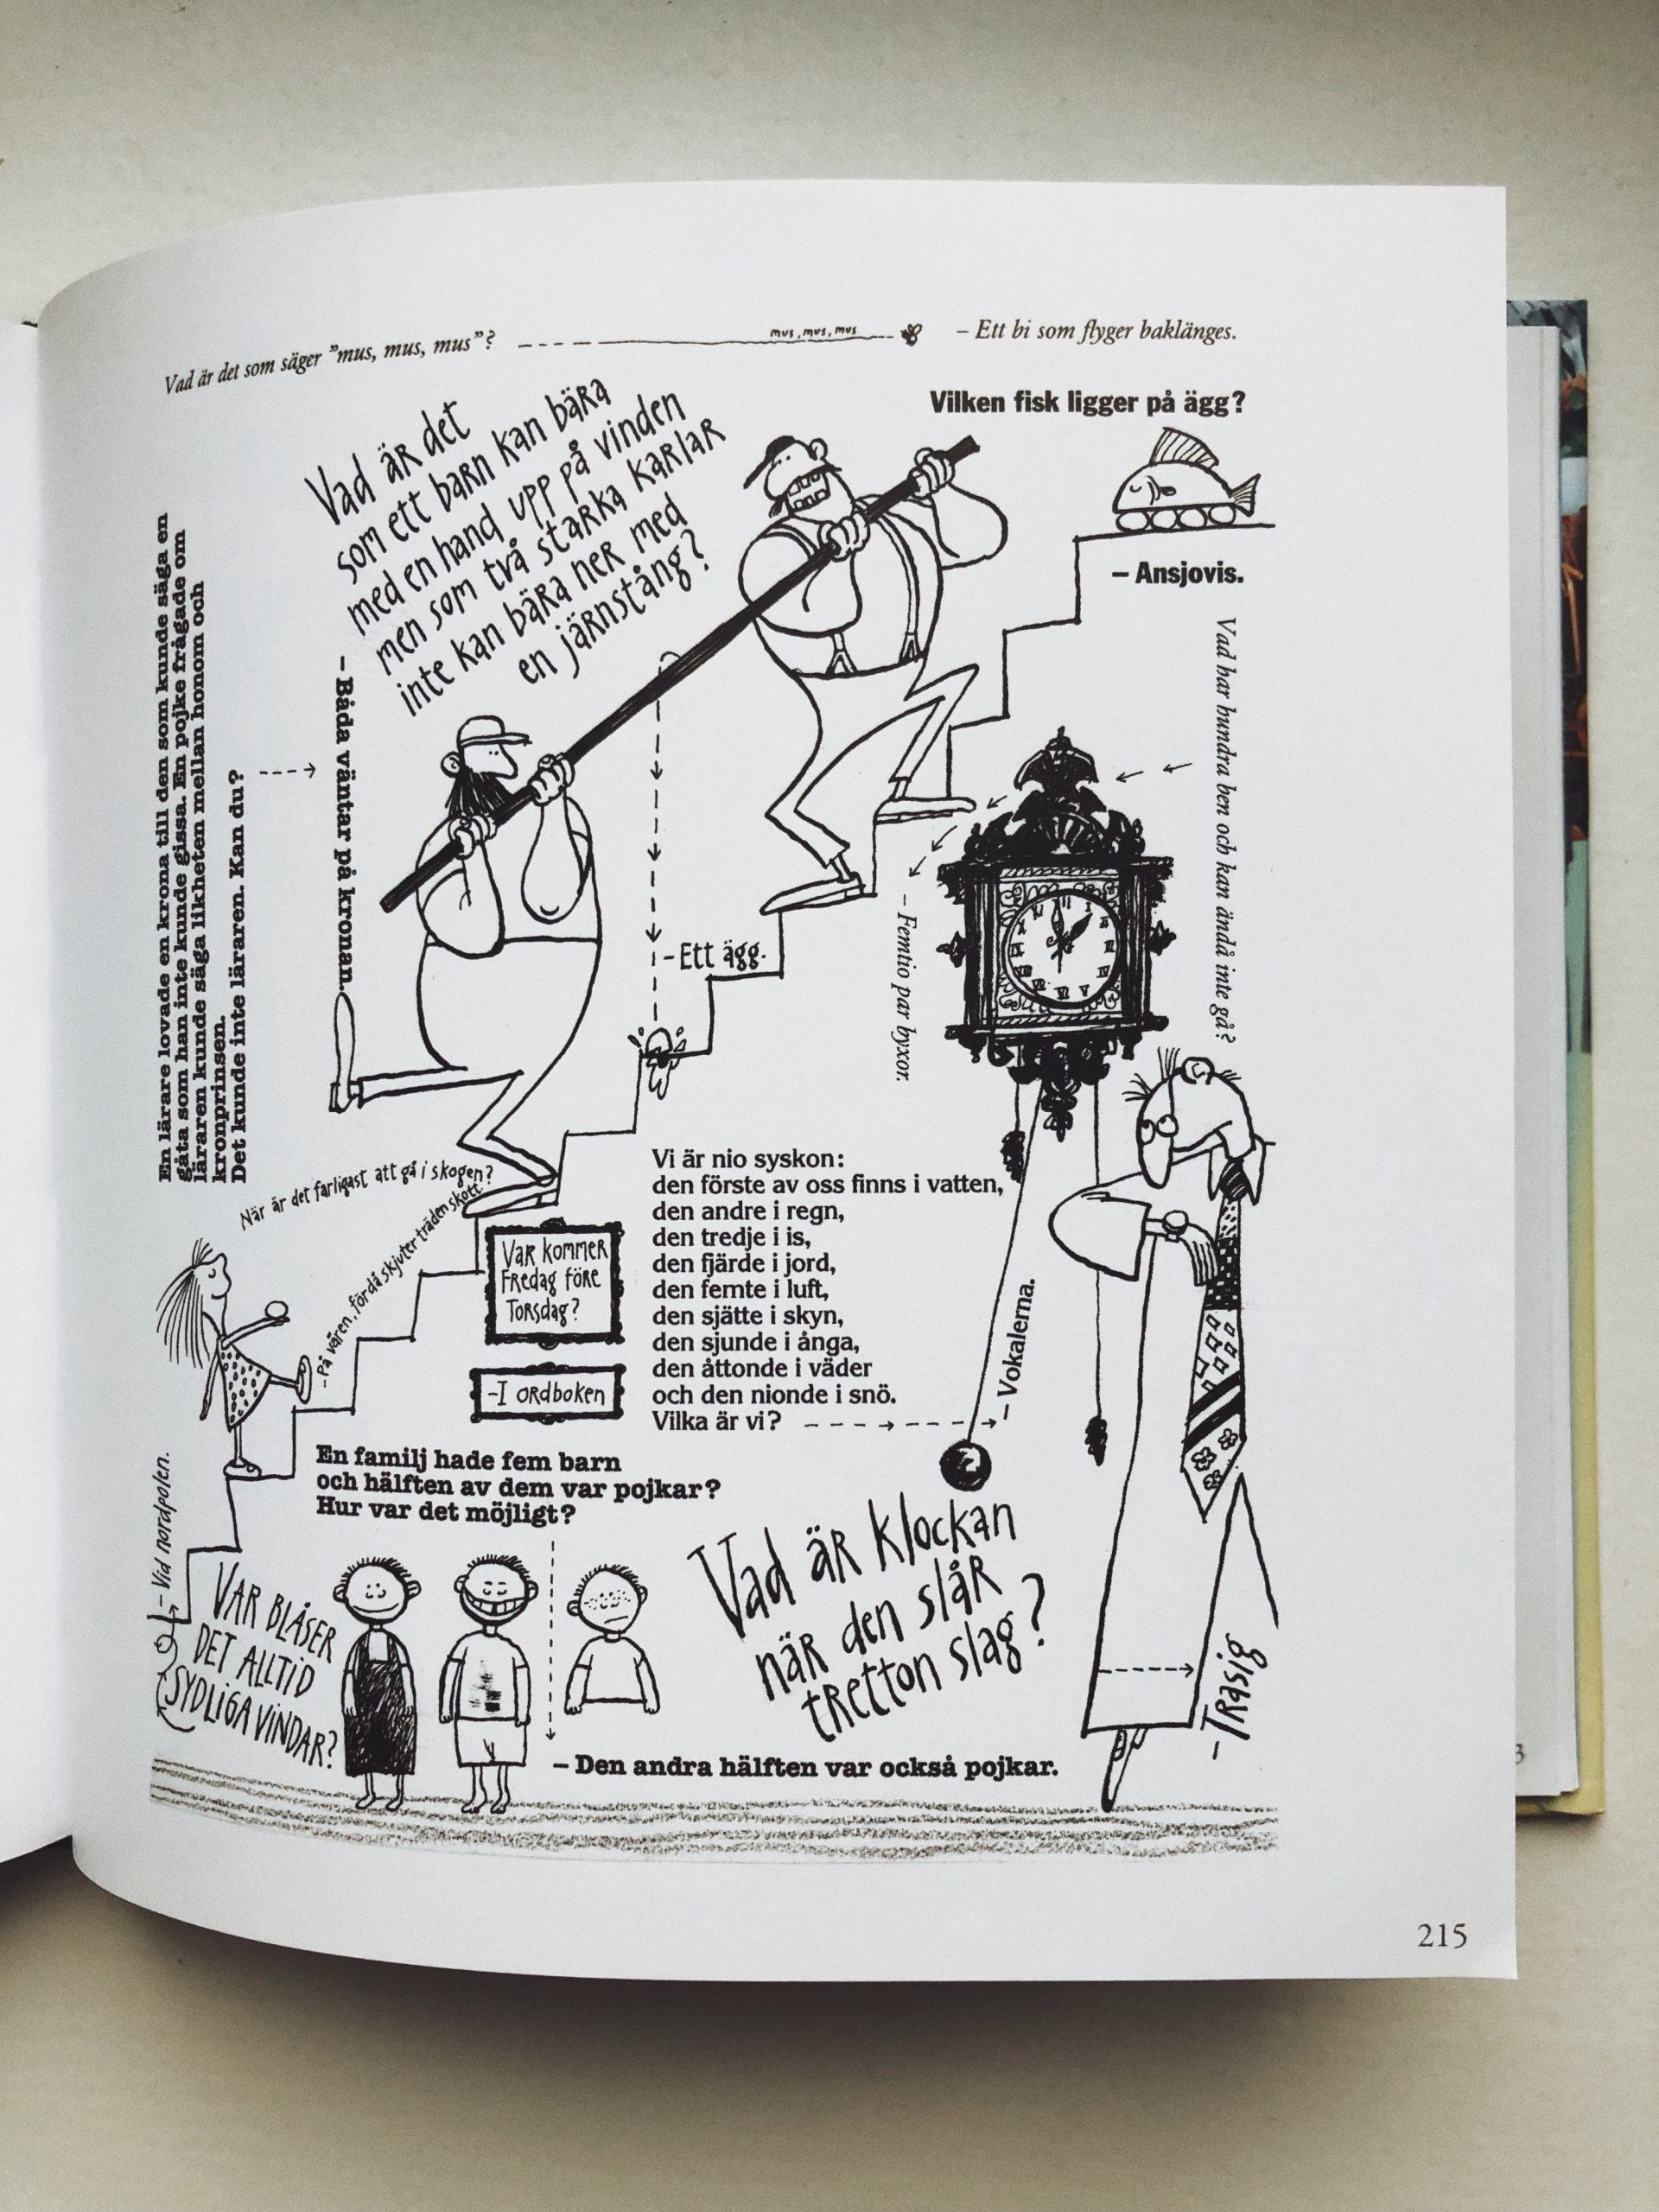 Vad är det som säger ”mus, mus, mus”?
mus, mus, mus
– Ett bi som flyger baklänges.
Vilken fisk ligger på ägg?
– Ansjovis.
Vad är det
som ett barn kan bära
med en hand upp på vinden
men som två starka karlar
inte kan bära ner med
en järnstång?
– Ett ägg.
En lärare lovade en krona till den som kunde säga en
gåta som han inte kunde gissa. En pojke frågade om
läraren kunde säga likheten mellan honom och
kronprinsen.
Det kunde inte läraren. Kan du?
– Båda väntar på kronan.
Vad har hundra ben och kan ändå inte gå?
– Femtio par byxor.
När är det farligast att gå i skogen?
– På våren, för då skjuter träden skott.
Var kommer
Fredag före
Torsdag?
–I ordboken
Vi är nio syskon:
den förste av oss finns i vatten,
den andre i regn,
den tredje i is,
den fjärde i jord,
den femte i luft,
den sjätte i skyn,
den sjunde i ånga,
den åttonde i väder
och den nionde i snö.
Vilka är vi?
– Vokalerna.
En familj hade fem barn
och hälften av dem var pojkar?
Hur var det möjligt?
– Den andra hälften var också pojkar.
Var blåser
det alltid
sydliga vindar?
– Vid nordpolen.
Vad är klockan
när den slår
tretton slag?
– Trasig
215
3